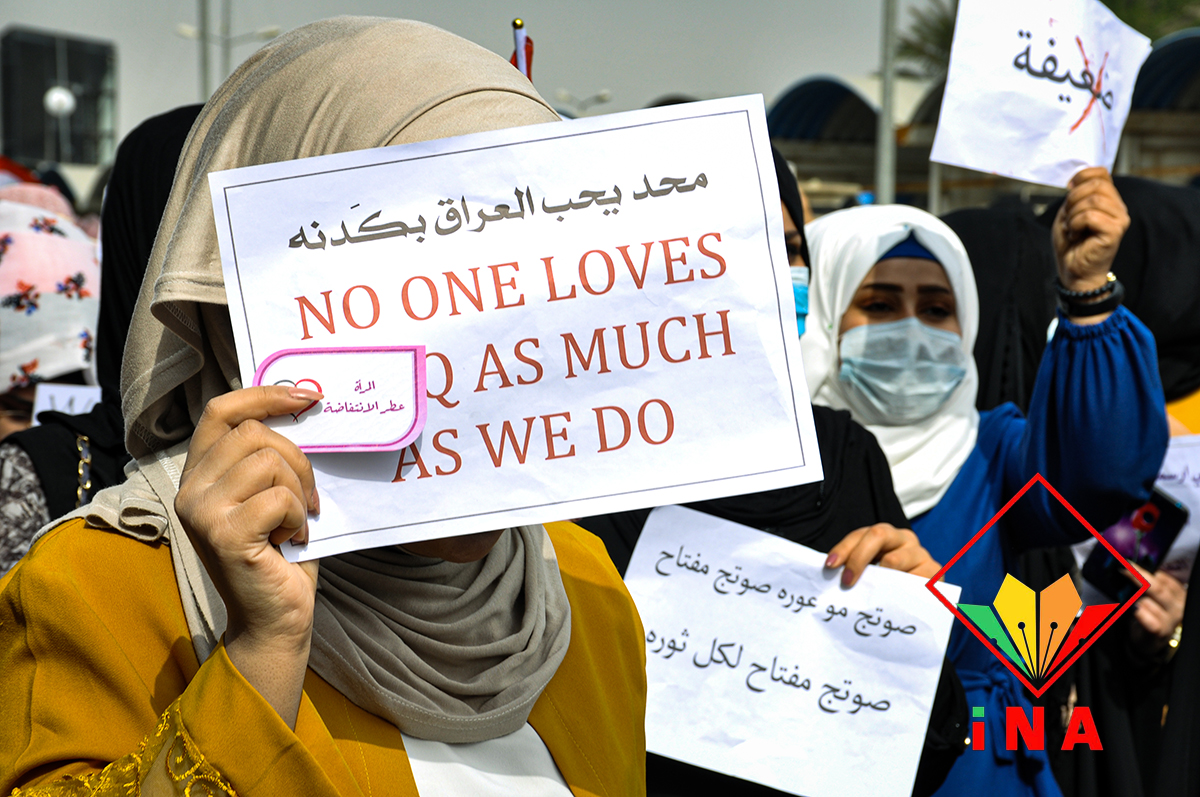 محد يحب العراق بكَدنه
NO ONE LOVES
Q AS MUCH
AS WE DO
المرأة
عطر الانتفاضة
ضعيفة
صوتج مو عوره صوتج مفتاح
صوتج مفتاح لكل ثوره
iNA